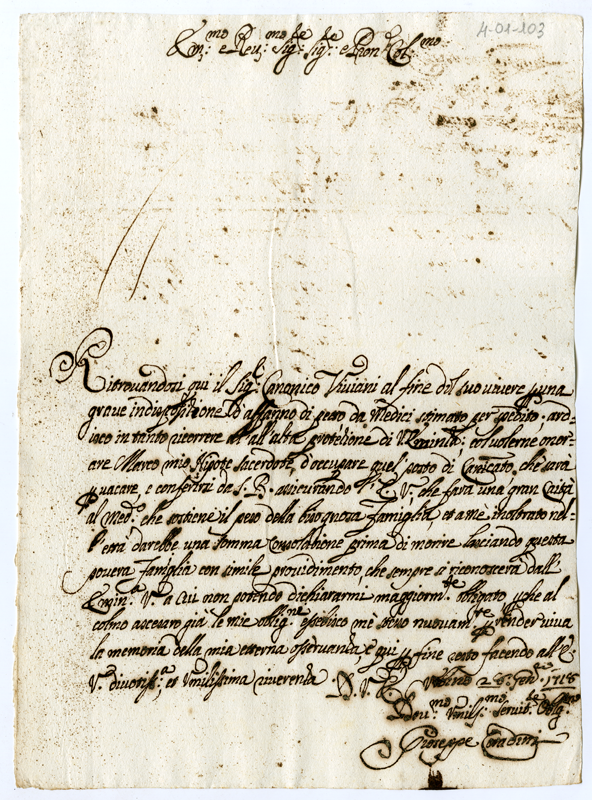 4-01-103
Em.mo e Rev.mo Sig.re Sig.re e Pron Col.mo
Ritrovandosi qui il Sig.r Canonico Viviani al fine del suo vivere p una
grave indisposizione d'affanno di petto da Medici stimato per spedito, ard=
isco in tanto ricorrere all'alta protezione di V. Eminẽza, col volerne onor=
are Marco mio Nipote sacerdote, d'occupare quel posto di Canonicato, che sarà
p vacare, e conferirsi da S. B. assicurando l'E. V. che farà una gran Carità
al Med.o che sostiene il peso della bisognosa famiglia, et a me inoltrato nel=
l'età darebbe una somma consolatione prima di morire lasciando questa
povera famiglia con simile providimento, che sempre si riconoscerà dall'
Emin.a V.a a cui non potendo dichiararmi maggiorm.te obligato p che al
colmo ascesero già le mie oblig.ne esebisco me stesso nuovam.te p render viva
la memoria della mia eterna osservanza, e qui p fine resto facendo all'E.
V.a divotiss.a et umilissima riverenza. D. V. E.
28 Gen. 1718
Dev.mo Umiliss.mo Servit.re Oblig.mo
Giuseppe Corradini